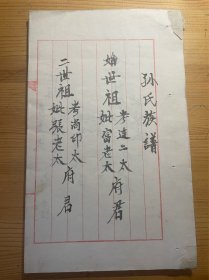 孙氏族譜
始世祖
考道二太
妣老太
府君
二世祖
考尚印太
妣張老太
府君